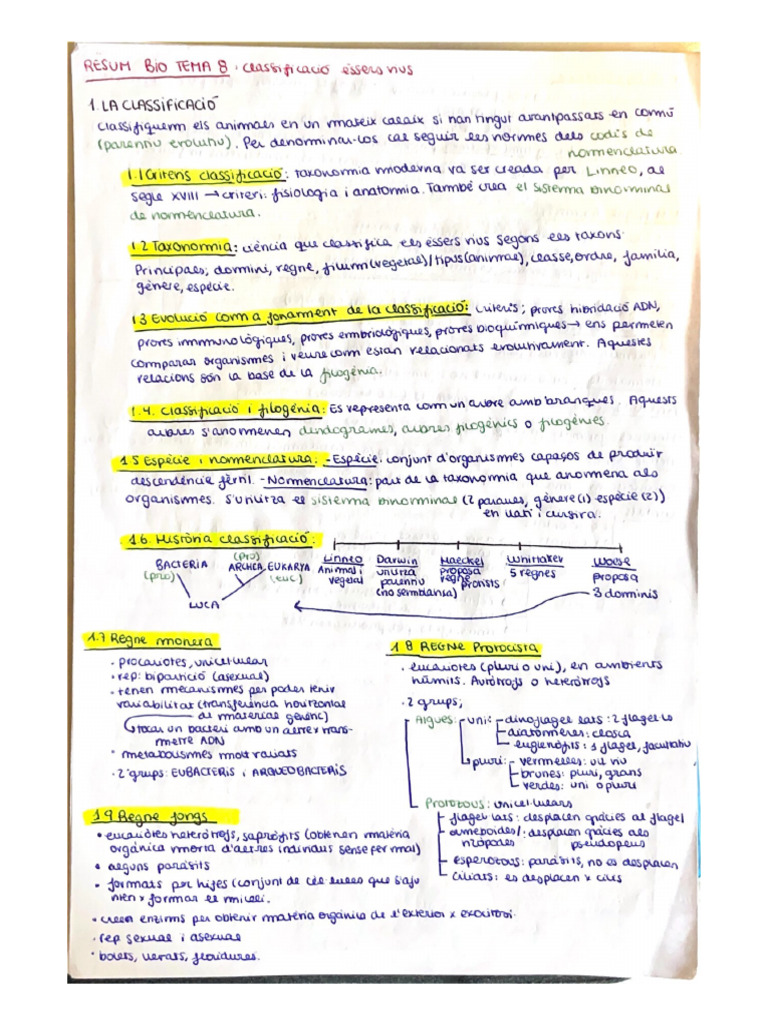 RESUM BIO TEMA 8: classificació éssers vius
1. LA CLASSIFICACIÓ
Classifiquem els animals en un mateix calaix si han tingut avantpassats en comú
(parentiu evolutiu). Per denominar-los cal seguir les normes dels codis de
nomenclatura.
1.1 Criteris classificació: taxonomia moderna va ser creada per Linneo, al
segle XVIII → criteri: fisiologia i anatomia. També crea el sistema binominal
de nomenclatura.
1.2 Taxonomia: ciència que classifica els éssers vius segons els taxons.
Principals; domini, regne, fílum (vegetal)/tipus (animal), classe, ordre, família,
gènere, espècie.
1.3 Evolució com a fonament de la classificació: criteris; proves hibridació ADN,
proves immunològiques, proves embriològiques, proves bioquímiques → ens permeten
comparar organismes i veure com estan relacionats evolutivament. Aquestes
relacions són la base de la filogènia.
1.4. Classificació i filogènia: Es representa com un arbre amb branques. Aquests
arbres s'anomenen dendogrames, arbres filogènics o filogènies.
1.5 Espècie i nomenclatura: - Espècie: conjunt d'organismes capaços de produir
descendència fèrtil. - Nomenclatura: part de la taxonomia que anomena als
organismes. S'utilitza el sistema binominal (2 paraules, gènere (1) espècie (2))
en llatí i cursiva.
1.6. Història classificació:
BACTERIA (pro) ARCHEA (pro) EUKARYA (euc)
LUCA
Linneo Animal i vegetal
Darwin utilitza parentiu (no semblança)
Haeckel proposa regne protists
Whittaker 5 regnes
Woese proposa 3 dominis
1.7 Regne monera
· procariotes, unicel·lular
· rep: bipartició (asexual)
· tenen mecanismes per poder tenir
variabilitat (transferència horitzontal
de material genètic)
tocar un bacteri amb un altre x trans-
metre ADN
· metabolismes molt variats
· 2 grups: EUBACTERIS i ARQUEOBACTERIS
1.8 REGNE Protoctista
· eucariotes (pluri o uni), en ambients
humits. Autòtrofs o heteròtrofs
· 2 grups;
Algues: uni: - dinoflagel·lats: 2 flagel·ls
- diatomeres: closca
- euglenòfits: 1 flagel, facultatiu
pluri: - vermelles: uti viu
- brunes: pluri, grans
- verdes: uni o pluri
Protozous: unicel·lulars
- flagel·lats: desplacen gràcies al flagel
- ameboides/ rizòpodes: desplacen gràcies als pseudopeus
- Esporozous: paràsits, no es desplacen
- Ciliats: es desplacen x cilis
1.9 Regne fongs
· eucariotes heteròtrofs, sapròfits (obtenen matèria
orgànica morta d'altres individus sense fer mal)
· alguns paràsits
· formats per hifes (conjunt de cèl·lules que s'aju
nten x formar el miceli.
· creen enzims per obtenir matèria orgànica de l'exterior x exocitosi.
· rep sexual i asexual
· bolets, llevats, floridures.